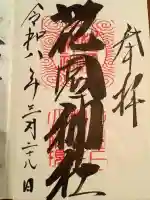 奉拝
花園神社
令和八年三月二八日